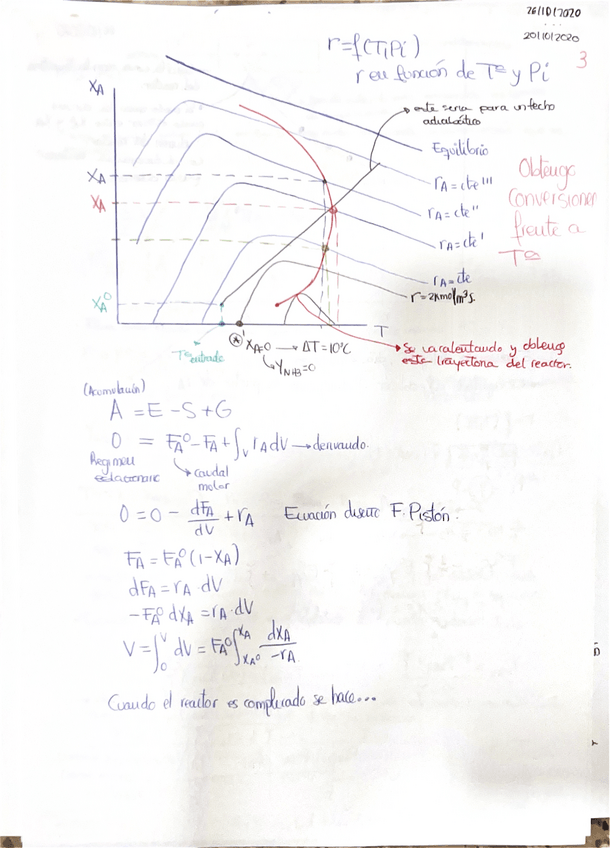 26/10/2020
20/10/2020
3
r=f(T,Pi)
r en función de Tª y Pi
XA
este seria para un lecho
adiabático
Equilibrio
rA = cte'''
XA
rA = cte''
XA
rA = cte'
Obtengo
Conversiones
frente a
Tª
rA = cte
XA⁰
r = 2kmol/m³s.
T
Tª entrada
A XA=0 → ΔT = 10ºC
YNH3=0
Se va calentando y obtengo
esta trayectoria del reactor.
(Acumulación)
A = E - S + G
0 = FA⁰ - FA + ∫V rA dV → derivando.
Regimen
estacionario
caudal
molar
0 = 0 - dFA/dV + rA Ecuación diseño F. Pistón.
FA = FA⁰ (1-XA)
dFA = rA · dV
-FA⁰ dXA = rA · dV
V = ∫₀ⱽ dV = FA⁰ ∫XA⁰ XA dXA/-rA
Cuando el reactor es complicado se hace...